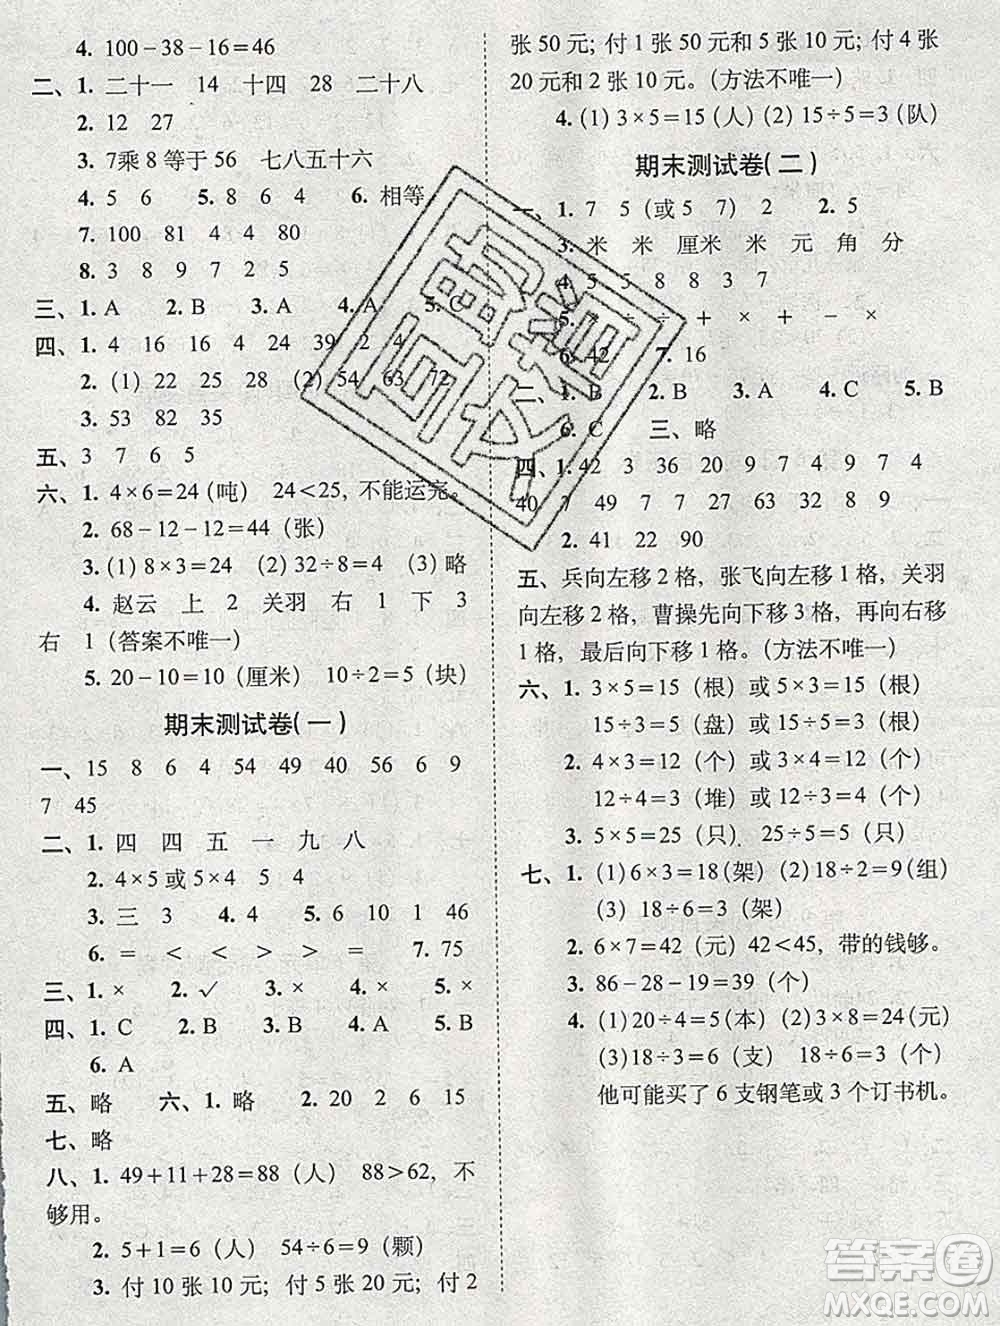 4. 100－38－16＝46
二、1. 二十一 14 十四 28 二十八
2. 12 27
3. 7乘 8 等于 56 七八五十六
4. 5 6 5. 8 6 4 6. 相等
7. 100 81 4 4 80
8. 3 8 9 7 2 5
三、1. A 2. B 3. A 4. A 5. C
四、1. 4 16 16 4 24 39 2 4
2. (1) 22 24 28 (2) 54 63 72
3. 53 82 35
五、3 7 6 5
六、1. 4×6＝24(吨) 24＜25, 不能运完。
2. 68－12－12＝44（张）
3. (1) 8×3＝24 (2) 32÷8＝4 (3) 略
4. 赵云 上 2 关羽 右 1 下 3
右 1（答案不唯一）
5. 20－10＝10（厘米） 10÷2＝5（块）
期末测试卷(一)
一、15 8 6 4 54 49 40 56 6 9
7 45
二、1. 四 四 五 一 九 八
2. 4×5 或 5×4 5 4
3. 三 3 4. 4 5. 6 10 1 46
6. ＝ ＜ ＜ ＞ ＞ ＝ 7. 75
三、1. × 2. ✓ 3. × 4. × 5. ×
四、1. C 2. B 3. B 4. A 5. B
6. A
五、略 六、1. 略 2. 20 2 6 15
七、略
八、1. 49＋11＋28＝88（人） 88＞62，不
够用。
2. 5＋1＝6（人） 54÷6＝9（颗）
3. 付 10 张 10 元; 付 5 张 20 元; 付 2
张 50 元; 付 1 张 50 元和 5 张 10 元; 付 4 张
20 元和 2 张 10 元。(方法不唯一)
4. (1) 3×5＝15（人） (2) 15÷5＝3（队）
期末测试卷(二)
一、1. 7 5（或 5 7） 2 2. 5
3. 米 米 厘米 米 元 角 分
4. 5 5 8 8 3 7
÷ ＋ × ＋ － ×
6. 42 7. 16
二、1. B 2. B 3. A 4. C 5. B
6. C 三、略
四、1. 42 3 36 20 9 7 4 9 7 4
40 7 49 7 7 27 37 32 8 9
2. 41 22 90
五、兵向左移 2 格，张飞向左移 1 格，关羽
向左移 2 格，曹操先向下移 3 格，再向右移
1 格，最后向下移 1 格。（方法不唯一）
六、1. 3×5＝15（根）或 5×3＝15（根）
15÷5＝3（盘）或 15÷3＝5（根）
2. 4×3＝12（个）或 3×4＝12（个）
12÷4＝3（堆）或 12÷3＝4（个）
3. 5×5＝25（只） 25÷5＝5（只）
七、1. (1)6×3＝18(架) (2)18÷2＝9(组)
(3) 18÷6＝3（架）
2. 6×7＝42（元）42＜45，带的钱够。
3. 86－28－19＝39（个）
4. (1)20÷4＝5(本) (2)3×8＝24(元)
(3)18÷3＝6（支） 18÷6＝3（个）
他可能买了 6 支钢笔或 3 个订书机。
答案圈
MXQE.COM